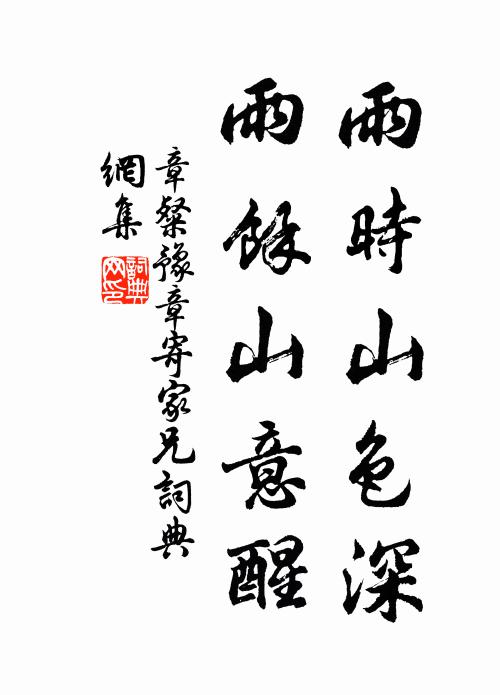 雨時山色深
雨餘山意醒
章粲豫章寄家兄詞典
網集
詞典網印